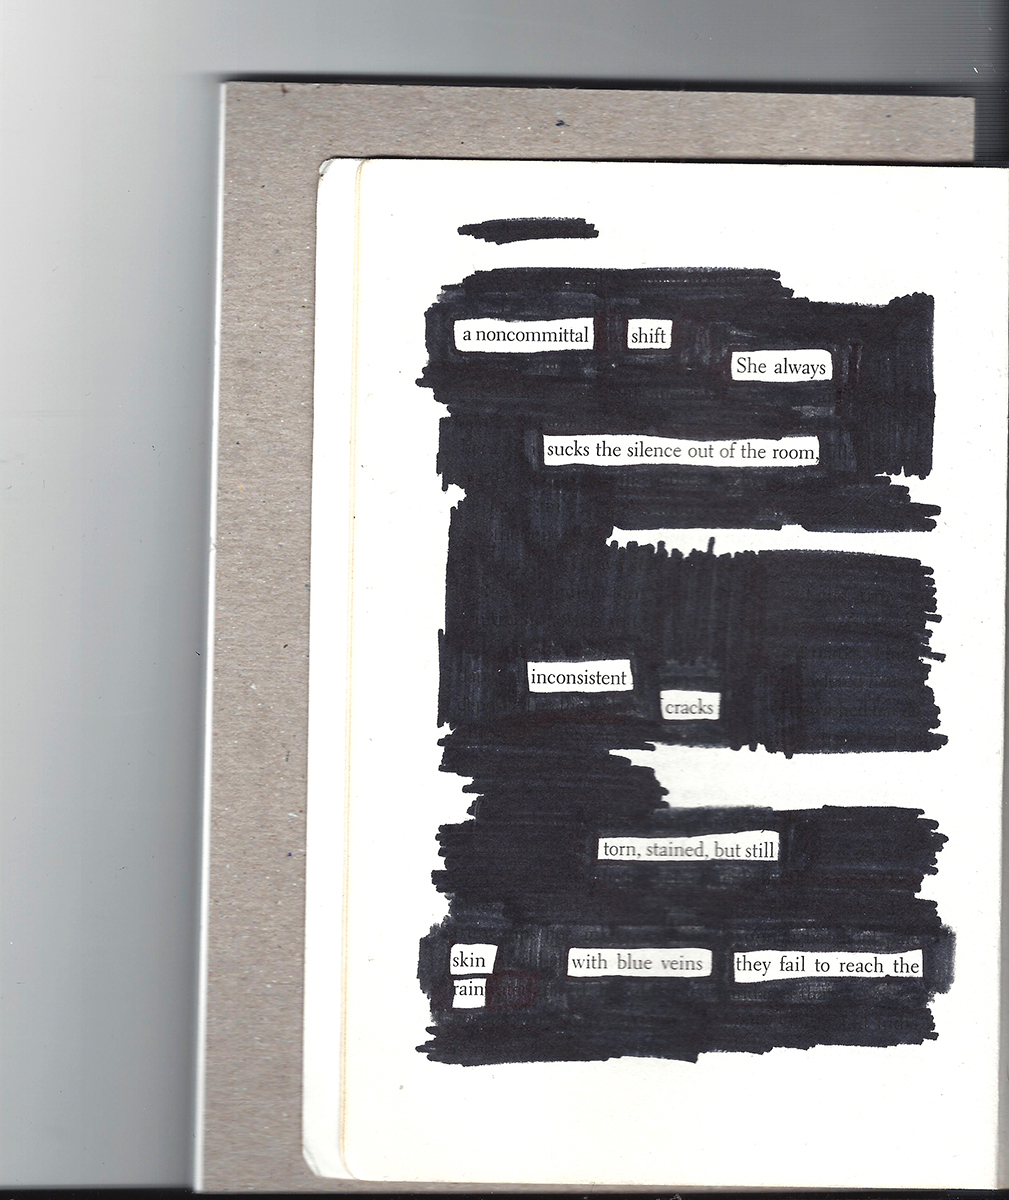 a noncommittal shift
She always
sucks the silence out of the room,
inconsistent
cracks
torn, stained, but still
skin with blue veins they fail to reach the
rain